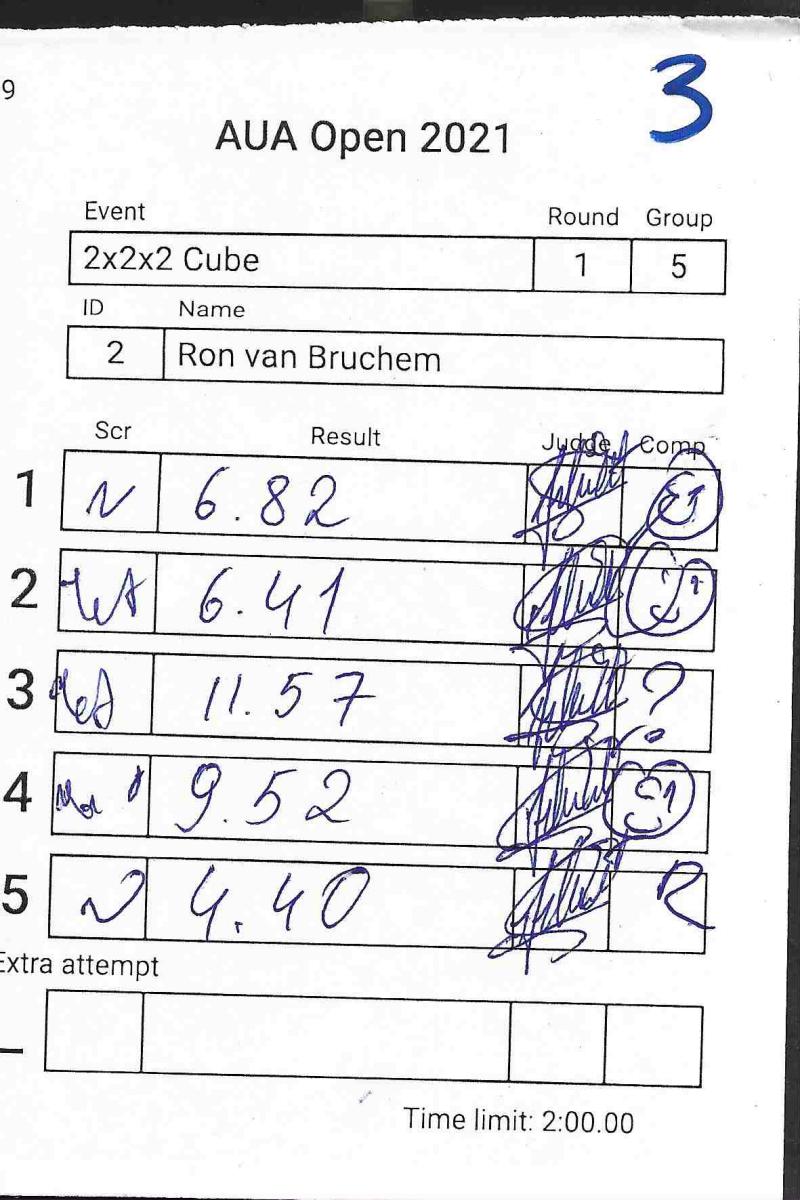 9
3
AUA Open 2021
Event Round Group
2x2x2 Cube 1 5
ID Name
2 Ron van Bruchem
Scr Result Judge Comp
1 N 6.82
2 6.41
3 11.57 ?
4 9.52
5 N 4.40 R
Extra attempt
_
Time limit: 2:00.00